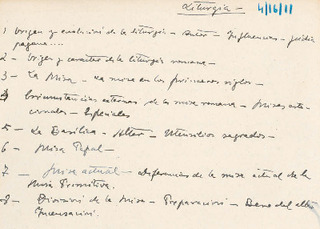 Liturgia - 4/16/11
1 Origen y evolucion de la liturgia - Autor - Influencias - judia
pagana...
2 - Origen y caracter de la liturgia romana -
3 - La Misa - La misa en los primeros siglos -
4 Circunstancias externas de la misa romana - Misas esta-
cionales - Especiales
5 - La Basilica - Altar - Utensilios sagrados -
6 - Misa Papal -
7 - Misa actual - diferencias de la misa actual de la
Misa Primitiva.
8 - Division de la Misa - Preparacion - Beso del altar
Incensacion.